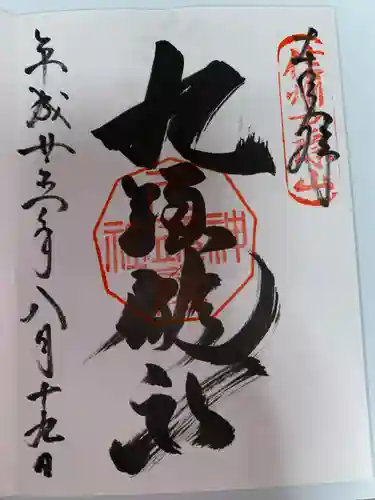 奉拝
信州戸隠山
九頭龍社
平成廿五年八月十九日